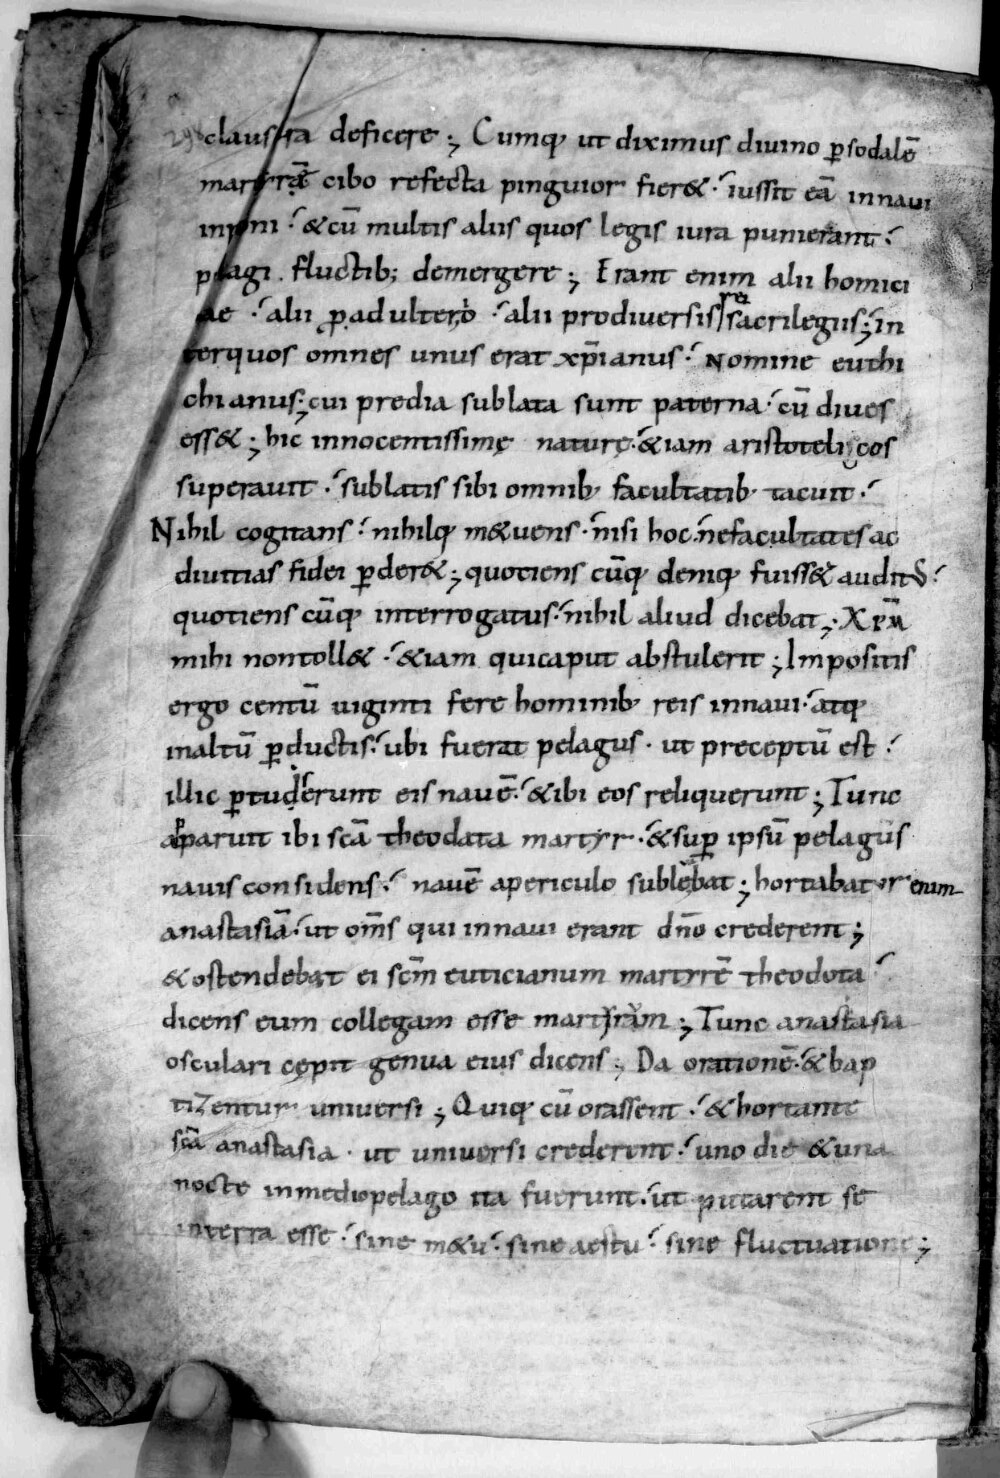 claustra deficere ; Cumq; ut diximus diuino p sodalē
martyrā cibo refecta pinguior fier& · iussit eā innaui
inponi · &cū multis aliis quos legis iura punierant ·
pelagi fluctib; demergere ; Erant enim alii homici
ae · alii p adulterio · alii prodiuersis sacrilegiis ; in
terquos omnes unus erat xp̄ianus · Nomine euthi
chianus ; cui predia sublata sunt paterna · cū diues
ess& ; hic innocentissimę naturę · &iam aristotelicos
superauit · sublatis sibi omnib; facultatib; tacuit ·
Nihil cogitans · nihilq; m&uens · nisi hoc · nefacultates ac
diuitias fidei pder& ; quotiens cūq; deniq; fuiss& audit ·
quotiens cūq; interrogatus · nihil aliud dicebat ; Xp̄m
mihi nontoll& · &iam quicaput abstulerit ; Impositis
ergo centū uiginti fere hominib; reis innaui · atq;
inaltū pductis · ubi fuerat pelagus · ut preceptū est ·
illic ptuderunt eis nauē · &ibi eos reliquerunt ; Tunc
apparuit ibi scā theodata martyr · &sup ipsū pelagus
nauis considens · nauē apericulo subleuabat ; hortabatur enim
anastasiā · ut om̄s qui innaui erant dn̄o crederent ;
&ostendebat ei scm̄ euticianum martyrē theodota ·
dicens eum collegam esse martyrum ; Tunc anastasia
osculari cępit genua eius dicens ; Da orationē · &bap
tizentur uniuersi ; Quiq; cū orassent · &hortante
scā anastasia · ut uniuersi crederent · uno die &una
nocte inmediopelago ita fuerunt · ut putarent se
interra esse · sine m&u · sine aestu · sine fluctuatione ;